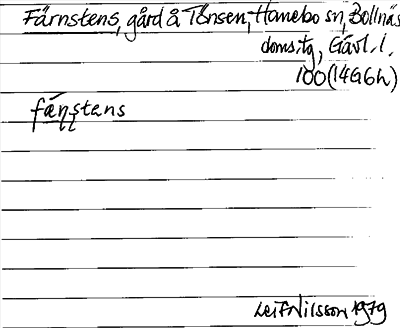 Färnstens, gård å Tönsen, Hanebo sn, Bollnäs
doms.tg, Gävl. l.
100 (14G6h)
fæ̷ɳʂtəns
Leif Nilsson 1979